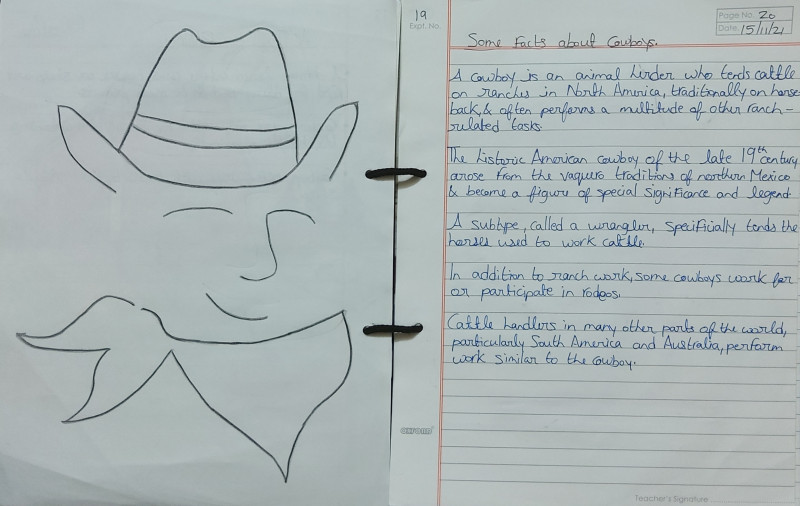 19
Expt. No.
Page No. 20
Date. 15/11/21
Some Facts about Cowboys.
A cowboy is an animal hirder who tends cattle
on ranches in North America, traditionally on horse-
back, & often performs a multitude of other ranch-
rulated tasks.
The historic American cowboy of the late 19th century
arose from the vaquero traditions of northern Mexico
& become a figure of special significance and legend
A subtype, called a wrangler, specificially tends the
horses used to work cattle.
In addition to ranch work, some cowboys work for
or participate in rodeos.
Cattle handlers in many other parts of the world,
particularly South America and Australia, perform
work similar to the cowboy.
Teacher's Signature